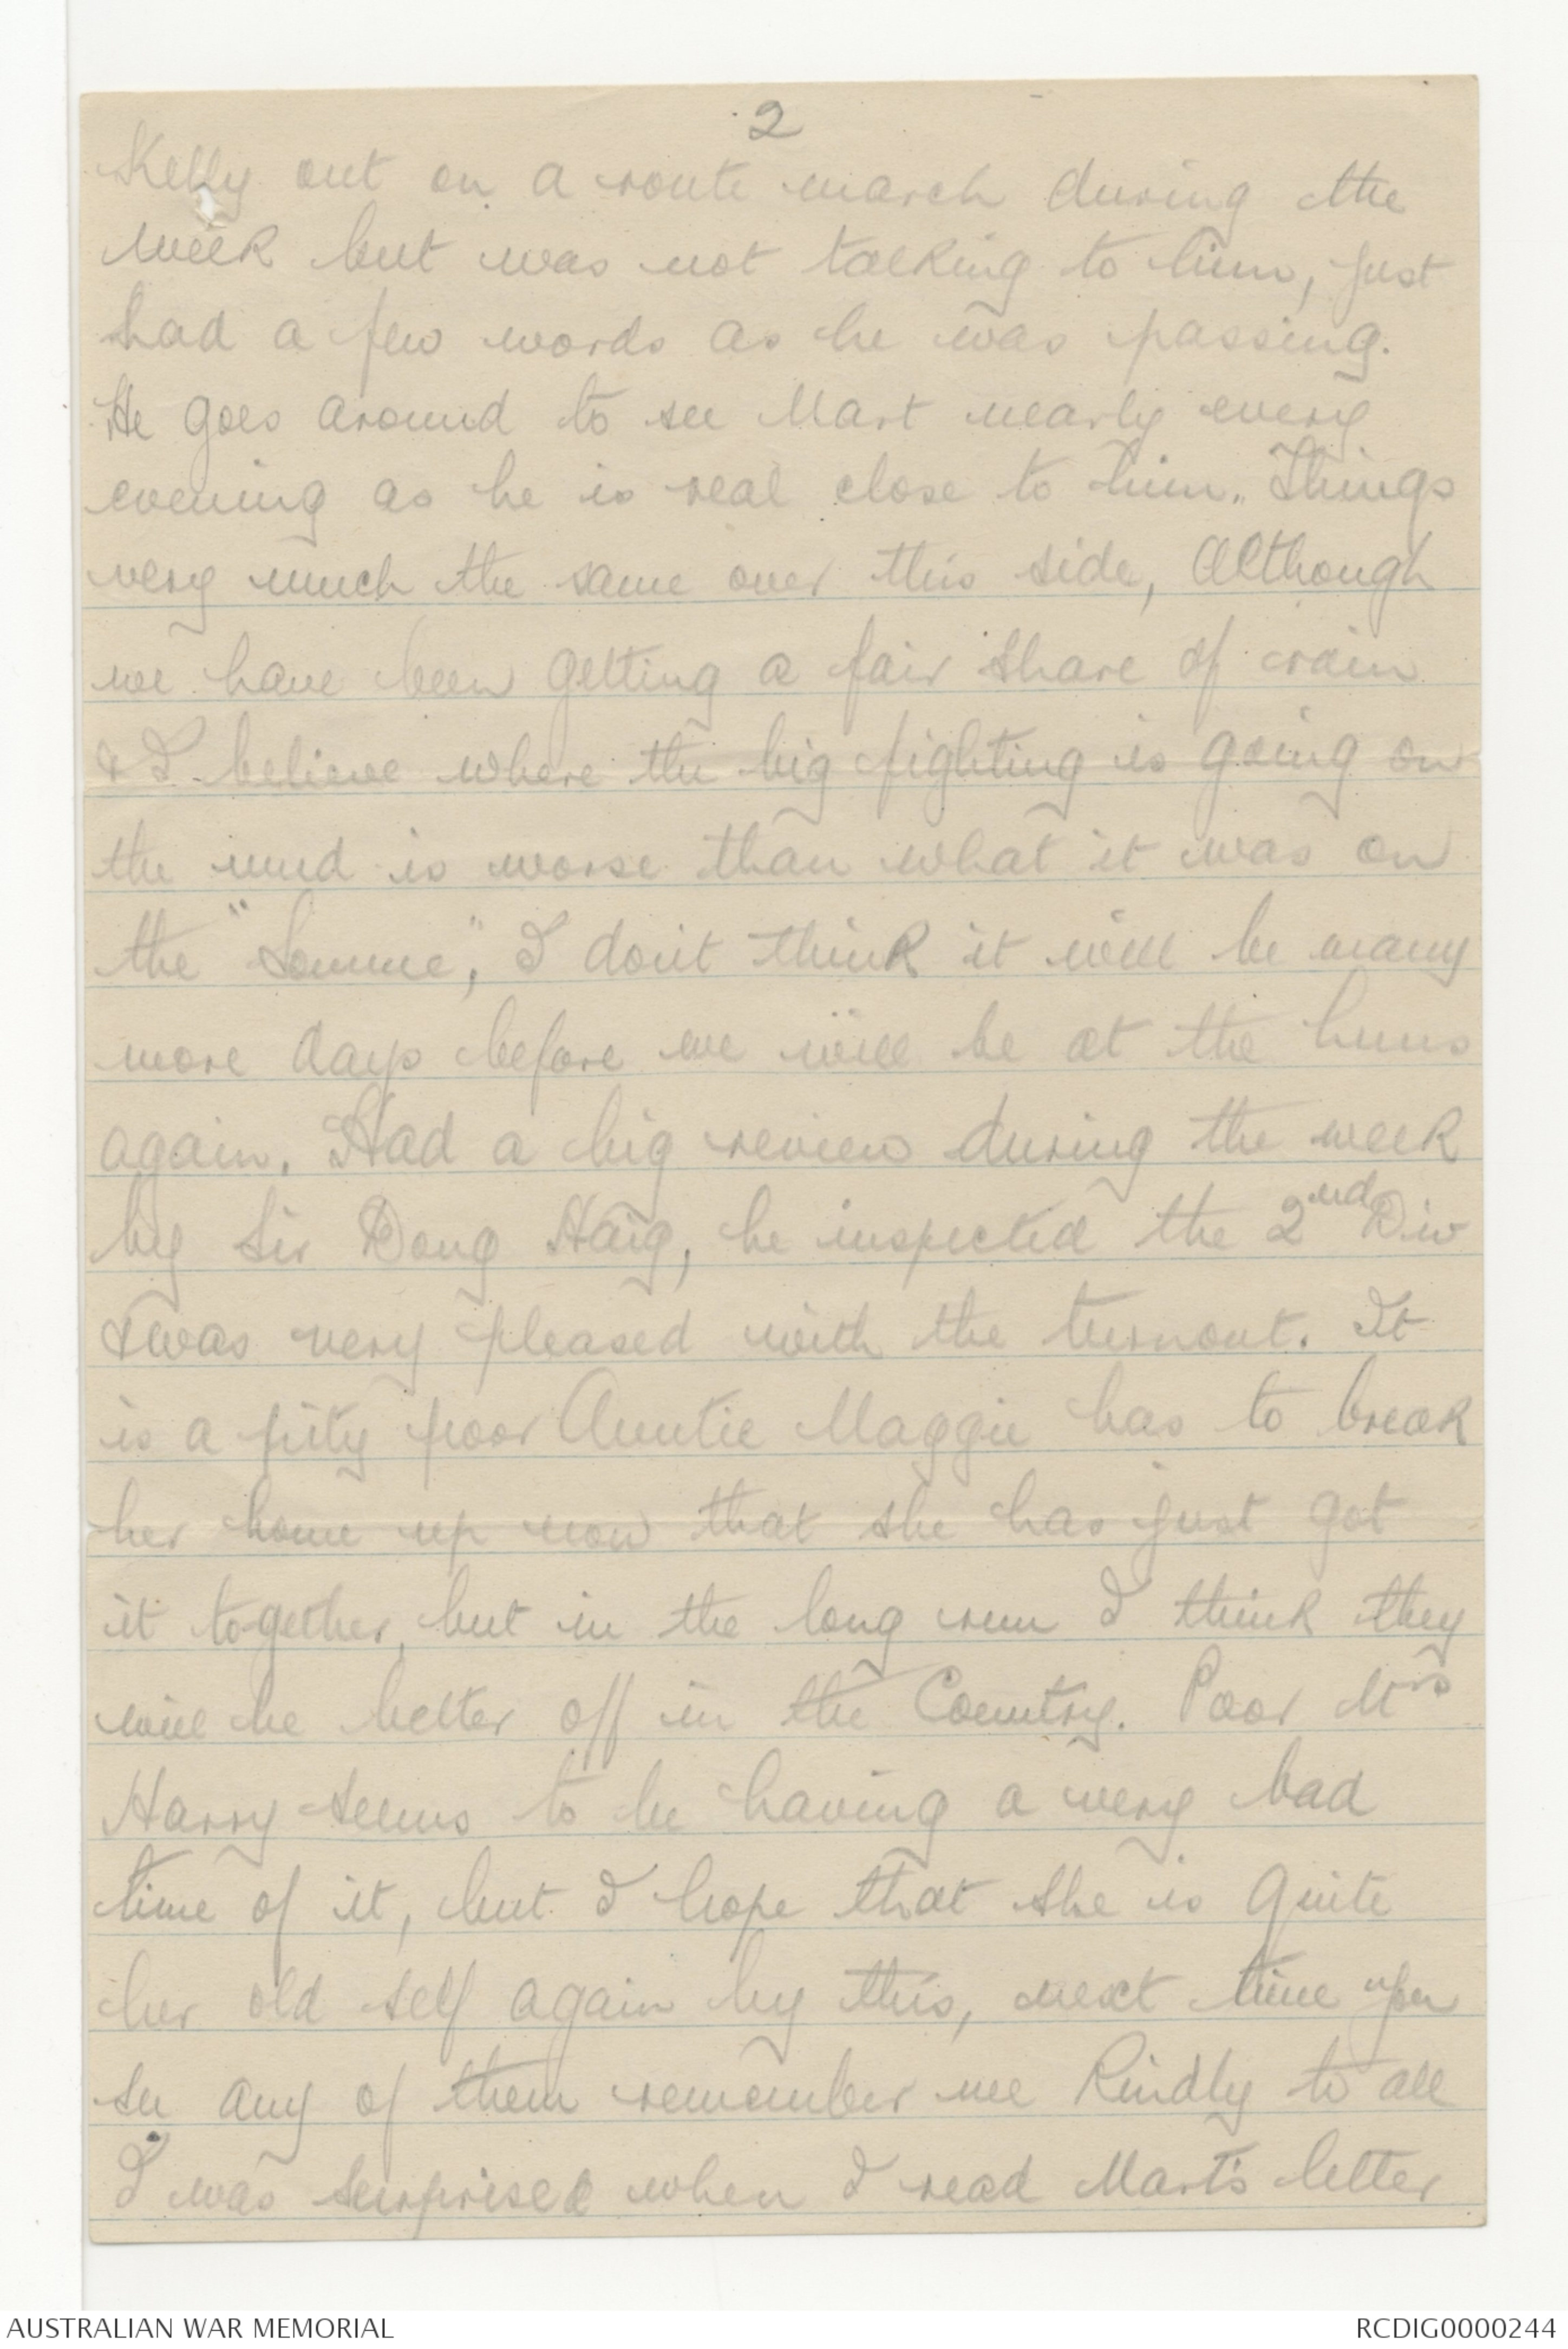 2
Kelly out on a route march during the
week but was not talking to him, just
had a few words as he was passing.
He goes around to see Mart nearly every
evening as he is real close to him. Things
very much the same over this side, Although
we have been getting a fair share of rain
& I believe where the big fighting is going on
the mud is worse than what it was on
the "Somme", I don't think it will be many
more days before we will be at the huns
again. Had a big review during the week
by Sir Doug Haig, he inspected the 2nd Div
& was very pleased with the turnout. It
is a pity poor Auntie Maggie has to break
her home up now that she has just got
it together, but in the long run I think they
will be better off in the Country. Poor Mrs
Harry seems to be having a very bad
time of it, but I hope that she is quite
her old self again by this, next time you
see any of them remember me kindly to all
I was surprised when I read Mart's letter
AUSTRALIAN WAR MEMORIAL
RCDIG0000244